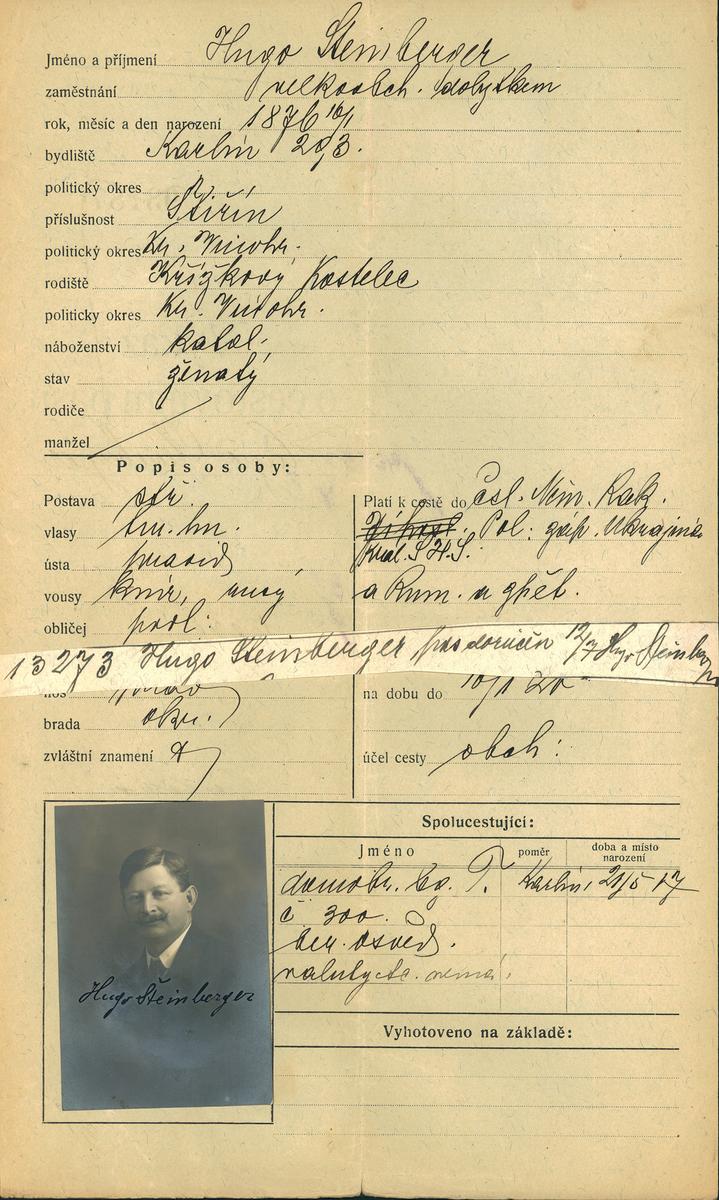 Jméno a příjmení Hugo Steinberger
zaměstnání velkoobch. dobytkem
rok, měsíc a den narození 1876 16/1
bydliště Karlín 203.
politický okres
příslušnost Štiřín
politický okres Kr. Vinohr.
rodiště Křížkový Kostelec
politicky okres Kr. Vinohr.
náboženství katol.
stav ženatý
rodiče
manžel
Popis osoby:
Postava stř.
vlasy tm. hn.
ústa pravid
vousy knír, rusý
obličej podl.
13273 Hugo Steinberger pas doručen 12/7 Hugo Steinberger
nos
brada okr.
zvláštní znamení
Platí k cestě do Čsl. Něm. Rak.
Pol. záp. Ukrajina
Král. S.H.S.
a Rum. a zpět.
na dobu do 10/1 20
účel cesty obch:
Hugo Steinberger
Spolucestující:
Jméno poměr doba a místo narození
domovr. Karlín, 21/5 17
č 300.
ber. osvěd.
nemá.
Vyhotoveno na základě: